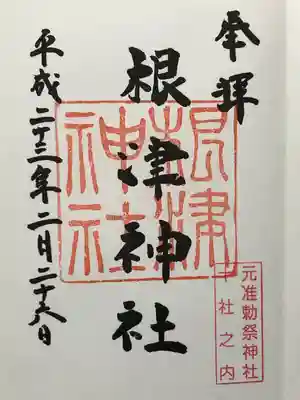 奉拝
根津神社
平成二十三年二月二十六日
根津神社
元准勅祭神社
十社之内